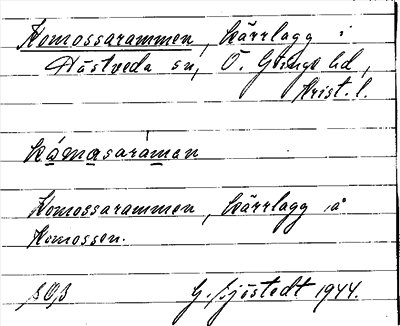 Komossarammen, kärrlagg i
Hästveda sn, Ö. Göinge hd,
Krist. l.
kámosaráman
Komossarammen, kärrlagg å
Komossen.
G. Sjöstedt 1944.